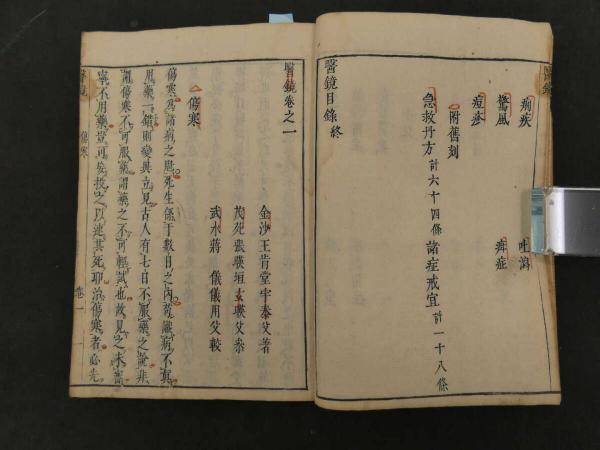 醫鏡
痢疾 吐瀉
驚風 疳症
痘疹
附舊刻
急救丹方計六十四條 諸症戒宜計一十八條
醫鏡目錄終
醫鏡卷之一
金沙王肯堂宇泰父著
張暎垣玄暎父叅
武水蔣 儀儀用父較
傷寒
傷寒為諸病之 死生係于數日之內茍識病不真
用藥一錯則變異立見古人有七日不服藥之論非
謂傷寒不可服藥謂藥之不可輕試也故見之未審
寧不用藥豈可妄投之以速其死耶治傷寒者必先
醫鏡 傷寒 卷一